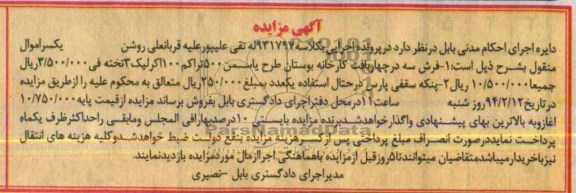 آگهی مزایده
دایره اجرای احکام مدنی بابل درنظر دارد درپرونده اجرایی بکلاسه۹۳۱۷۹۷له تقی علیپورعلیه قربانعلی روشن یکسراموال
منقول بشرح ذیل است:۱-فرش سه درچهاربافت کارخانه بوستان طرح یاسمن۵۰۰تراکم۱۰۰اکرلیک۳تخته فی۳/۵۰۰/۰۰۰ریال
جمیعا۱۰/۵۰۰/۰۰۰ریال۲-پنکه سقفی پارس درحال استفاده یکعدد بمبلغ۲۵۰/۰۰۰ریال متعلق به محکوم علیه را ازطریق مزایده
درتاریخ۹۴/۲/۱۲روز شنبه ساعت۱۱درمحل دفتراجرای دادگستری بابل بفروش برساند مزایده ازقیمت پایه۱۰/۷۵۰/۰۰۰
اغازوبه بالاترین بهای پیشنهادی واگذارخواهدشدبرنده مزایده بایستی۱۰درصدبهارافی المجلس ومابقی راحداکثرظرف یکماه
پرداخت نمایددرصورت انصراف مبلغ پرداختی پس از کسرهزینه مزایده بنفع دولت ضبط خواهدشدوکلیه هزینه های انتقال
نیزباخریدارمیباشدمتقاضیان میتوانندتا۵روزقبل ازمزایده باهماهنگی اجراازمال موردمزایده بازدیدنمایند.
مدیراجرای دادگستری بابل -نصیری
ParsNamadData